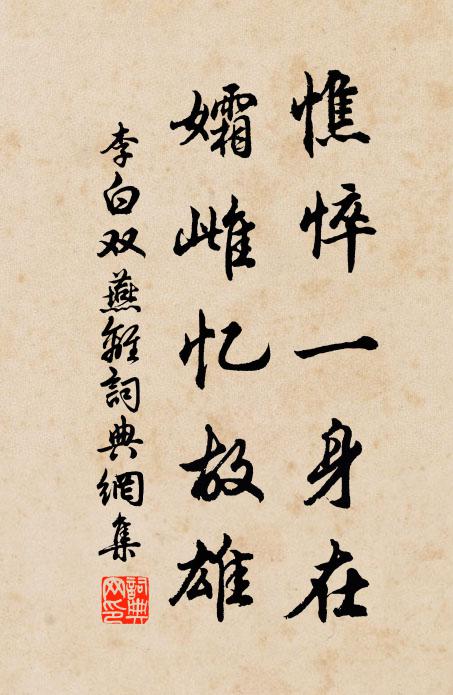 憔悴一身在
孀雌忆故雄
李白双燕離詞典網集
詞典網印